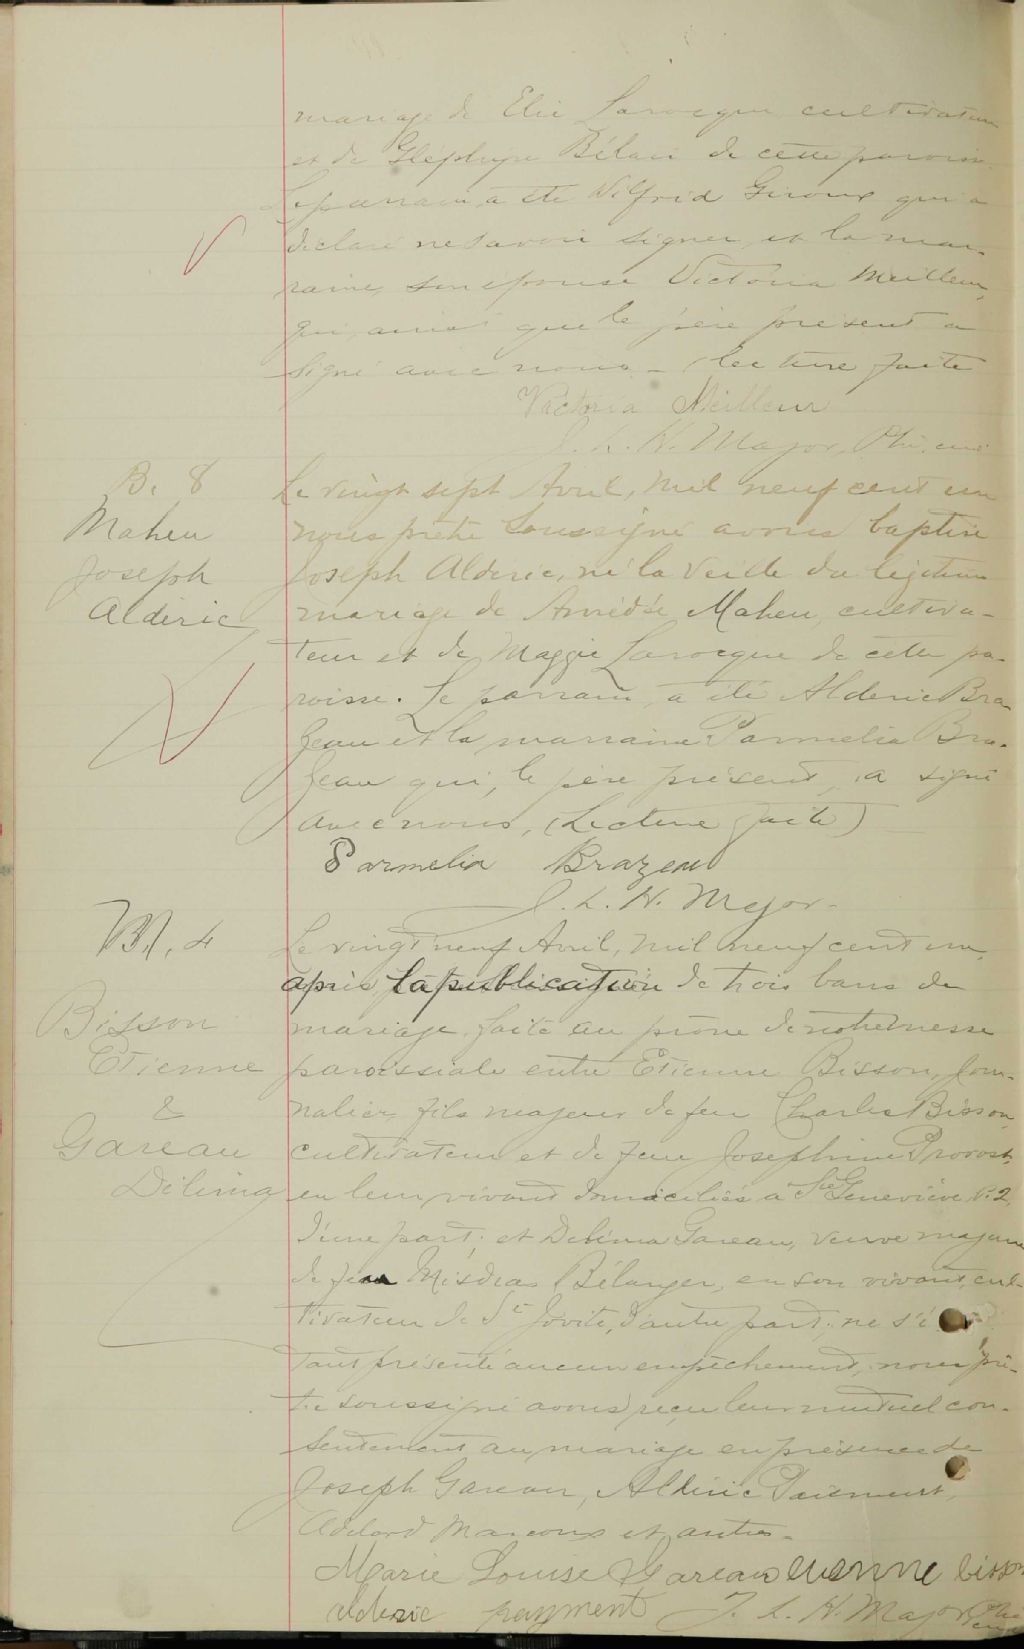 mariage de Elie Larocque cultivateur
et de Gléphyre Bélair de cette paroisse
Le parrain a été Wilfrid Giroux qui a
déclaré ne savoir signer et la mar-
raine, son épouse Victoria Meilleur,
qui, ainsi que le père présent a
signé avec nous - lecture faite
Victoria Meilleur
J. L. H. Major, Ptre, curé
B. 8
Maheu
Joseph
Aldéric
Le vingt sept Avril, mil neuf cent un
nous prêtre soussigné avons baptisé
Joseph Alderic, né la veille du légitime
mariage de Amédée Maheu, cultiva-
teur et de Maggie Larocque de cette pa-
roisse. Le parrain a été Alderic Bra-
zeau et la marraine Parmelia Bra-
zeau qui, le père présent, a signé
avec nous, (Lecture faite)
Parmelia Brazeau
J. L. H. Major-
M. 4
Bisson
Etienne
&
Gareau
Délima
Le vingt neuf Avril, mil neuf cent un,
après la publication de trois bans de
mariage faite au prône de notre messe
paroissiale entre Etienne Bisson, jour-
nalier, fils majeur de feu Charles Bisson,
cultivateur et de feue Josephine Provost,
en leur vivant domiciliés à Ste Geneviève
d'une part; et Delima Gareau, veuve majeure
de feu Bélanger, en son vivant cul-
tivateur de St Jovite, d'autre part; ne s'é
tant présenté aucun empêchement, nous prê-
tre soussigné avons reçu leur mutuel con-
sentement au mariage en présence de
Joseph Gareau, Aldéric Paiement,
Adelard Marcoux et autres-
Marie Louise Gareau etienne bisson
alderic payment J. L. H. Major Ptre
curé